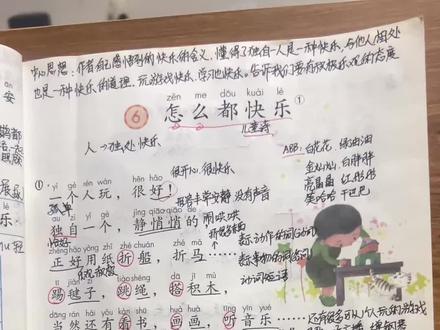 中心思想：作者自己感悟到的快乐的含义，懂得了独自一人是一种快乐，与他人相处
也是一种快乐的道理，玩游戏快乐，学习也快乐。告诉我们要有积极乐观的态度
zěn me dōu kuài lè
6 怎么都快乐①
儿童诗
人→独处 快乐
ABB：白花花 绿油油
金灿灿 白胖胖
亮晶晶 红彤彤
笑哈哈
很开心，很快乐
yí gè rén wán hěn hǎo
① 一个人玩，很好！
孤单
声音 安静 没有声音
dú zì yí gè jìng qiāo qiāo de
独自一个，静悄悄的 闹哄哄
恰好
zhèng hǎo yòng zhǐ zhé chuán zhé mǎ
正好用纸折船，折马……
表示动作的词 动词
表示事物的词 名词
动词短语
tī jiàn zi tiào shéng dā jī mù
踢毽子，跳绳，搭积木，
dāng rán hái yǒu kàn shū huà huà tīng yīn yuè
当然还有看书，画画，听音乐……
还有很多可以一个人玩的游戏
安
乐